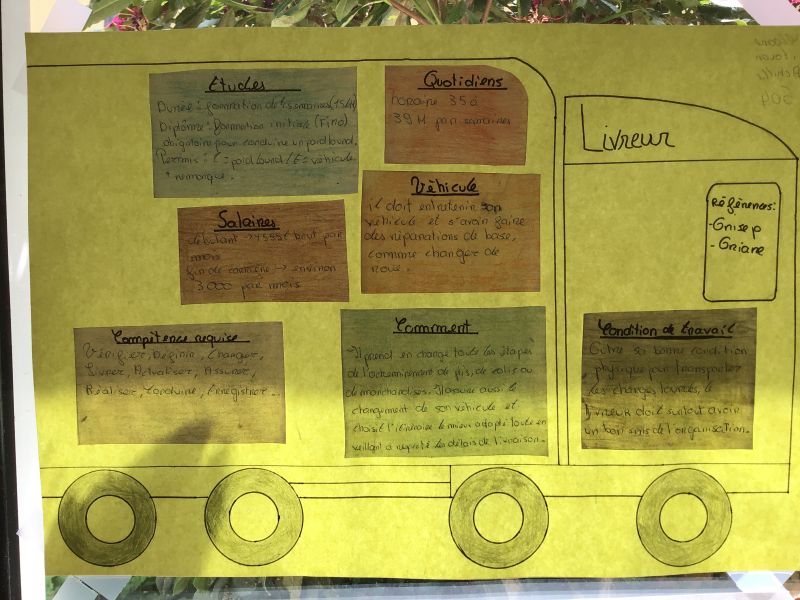 Etudes
Durée: formation de 15 semaines (154H)
Diplôme: formation initiale (Fimo)
obligatoire pour conduire un poid lourd.
Permis: C = poid lourd / E = véhicule
+ remorque.
Quotidiens
horaire 35 à
39 H par semaines
Livreur
Références:
- Onisep
- Oriane
Salaires
débutant → 1555€ brut par
mois
fin de carrière → environ
3000 par mois
Véhicule
il doit entretenir son
véhicule et s'avoir faire
des réparations de base,
comme changer de
roue.
Compétence requise
Vérifier, Définir, Charger,
Livrer, Actualiser, Assurer,
Réaliser, Conduire, Enregistrer...
Comment
→ Il prend en charge toute les étapes
de l'acheminement de plis, de colis ou
de marchandises. Il assure aussi le
chargement de son véhicule et
choisit l'itinéraire le mieux adapté toute en
veillant a respecté les délais de livraison.
Condition de travail
Être en bonne condition
physique pour transporter
des charges lourdes, le
livreur doit surtout avoir
un bon sens de l'organisation.